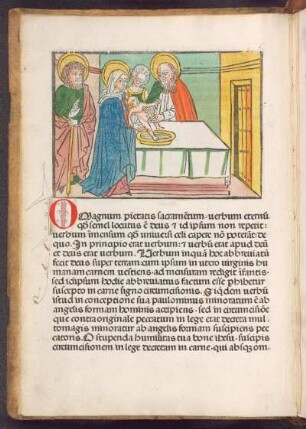 O Magnum pietatis sacramētum. verbum eternū
qđ semel locutus ē deus ⁊ id ipsum non repetit:
verbum īmensum qđ universi celi capere nō poterāt de
quo. In principio erat verbum: ⁊ verbū erat apud deū
et deus erat verbum. Verbum inquā hoc abbreviatū
fecit deus super terram cum ipsum in utero virginis hu
manam carnem vestiens. ad mensuram redigit īfantis.
sed id ipsum hodie abbreviatius factum esse phibetur
suscepto in carne signo circumcisionis. Et iđem verbū
istud in conceptione sua paulominus minoratum ē ab
angelis formam hominis accipiens. sed in circūcisiōe
que contra originale peccatum in lege erat decreta mul
tomagis minoratur ab angelis formam suscipiens pec
catoris. O stupenda humilitas tua bone ihesu. suscipis
circumcisionem in lege decretam in carne. qui absqꝫ om